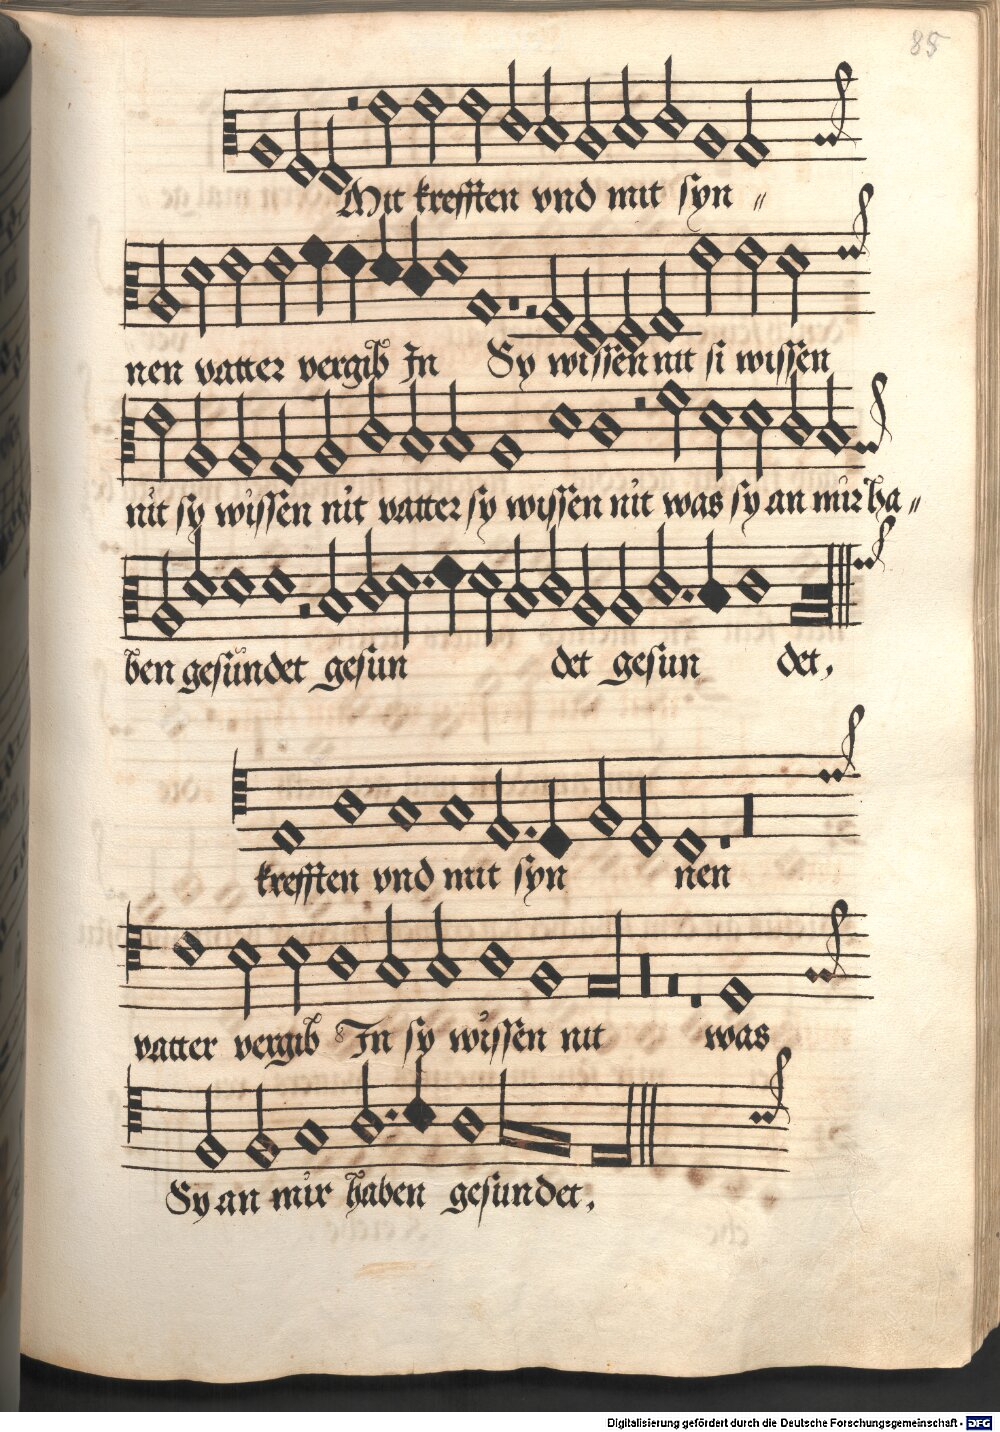 85
Mit krefften vnd mit syn〃
nen vatter vergib In Sy wissen nit si wissen
nit sy wissen nit vatter sy wissen nit was sy an mir ha〃
ben gesündet gesun det gesun det,
krefften vnd mit syn nen
vatter vergib In sy wissen nit was
Sy an mir haben gesundet,
Digitalisierung gefördert durch die Deutsche Forschungsgemeinschaft - DFG